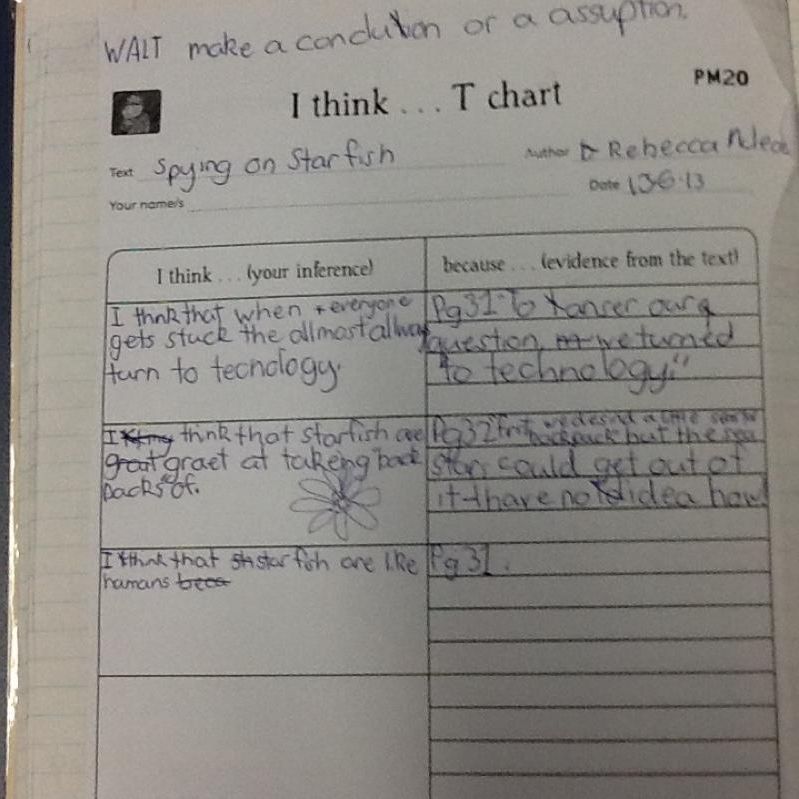 WALT make a conclution or a assuption.
PM20
I think ... T chart
Text Spying on Starfish
Author Rebecca
Date 13·6·13
Your name/s
I think ... (your inference)
because ... (evidence from the text)
I thnk that when everyone
gets stuck the allmost allway
turn to tecnology.
Pg 31 "To our
question we turned
to technology."
I think that starfish are
graet at takeing back
packs of.
Pg 32 a little
backpack but the sea
stars could get out of
it I have no idea how
I think that star fish are like
humans
Pg 31.